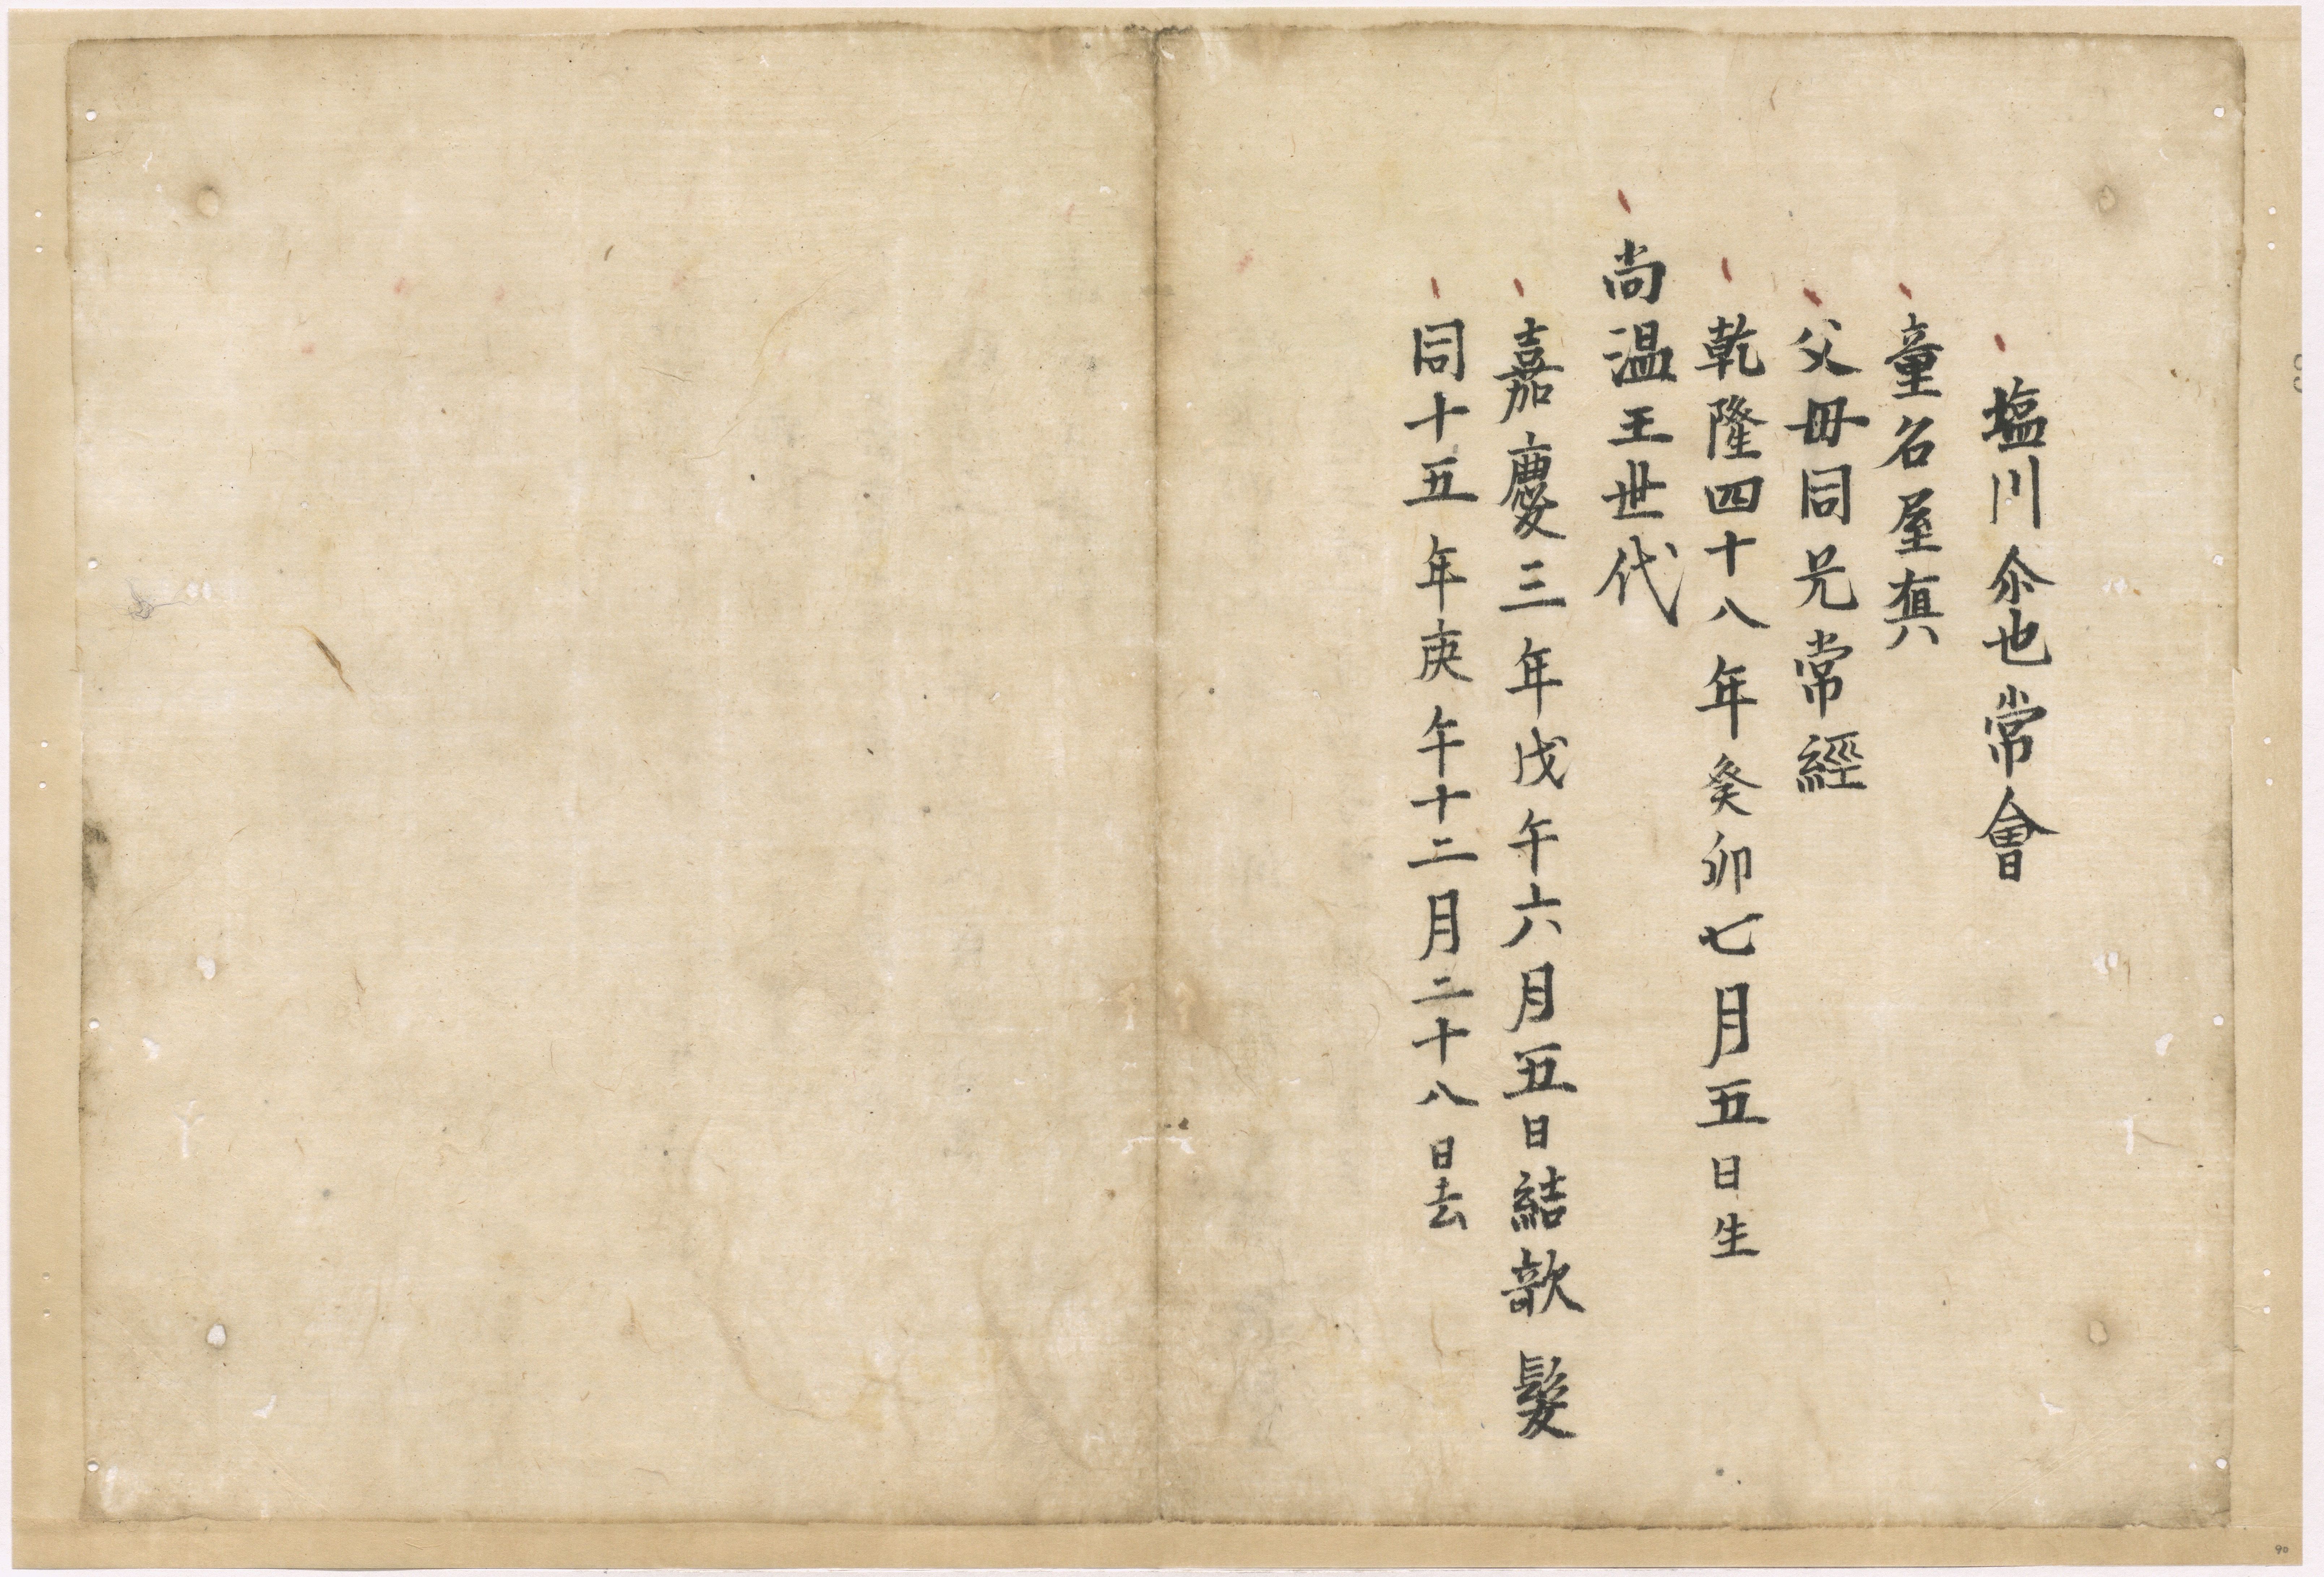 塩川尒也常會
童名屋
父母同兄常經
乾隆四十八年癸卯七月五日生
尚温王世代
嘉慶三年戊午六月五日結欹髮
同十五年庚午十二月二十八日去
90